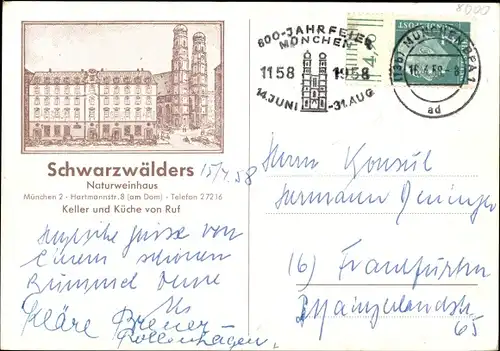 8000
800-JAHRFEIER
MÜNCHEN
1158 1958
14.JUNI -31.AUG
(13b) MÜNCHEN BPA 1
16.4.58 - 8
ad
Schwarzwälders
Naturweinhaus
München 2 · Hartmannstr. 8 (am Dom) · Telefon 27216
Keller und Küche von Ruf
15/4 58
Herzliche Grüsse von
einem schönen
Bummel
Kläre Breuer
Herrn Konsul
Hermann
16) Frankfurt/m
65